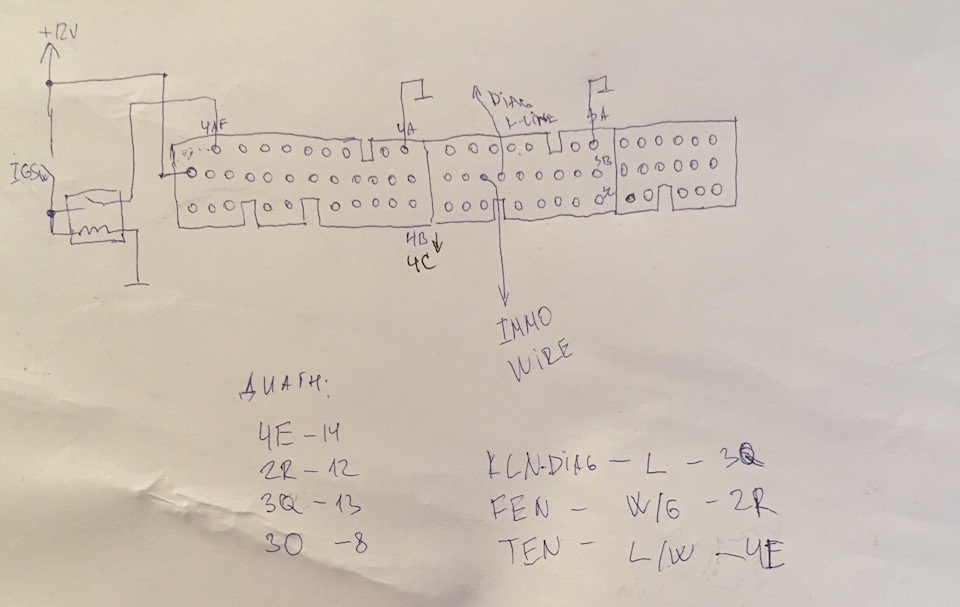 +12V
DIAG
K-LINE
4AF
4A
3A
IGSW
3B
4B
4C
IMMO
WIRE
ДИАГН:
4E - 14
2R - 12
3Q - 13
3O - 8
KLN-DIAG - L - 3Q
FEN - W/G - 2R
TEN - L/W - 4E